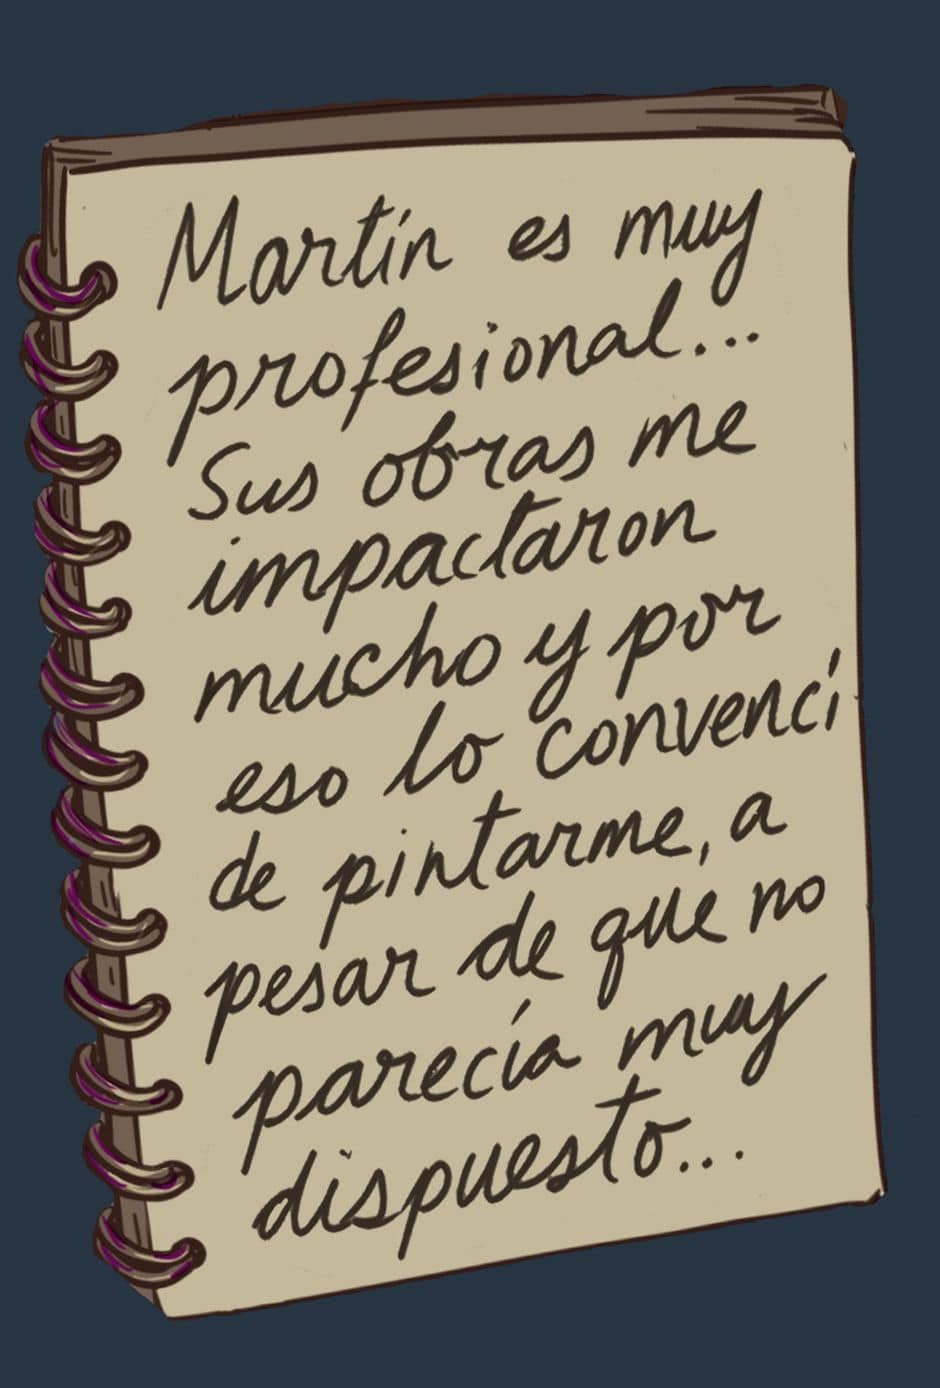 Martín es muy
profesional...
Sus obras me
impactaron
mucho y por
eso lo convencí
de pintarme, a
pesar de que no
parecía muy
dispuesto...